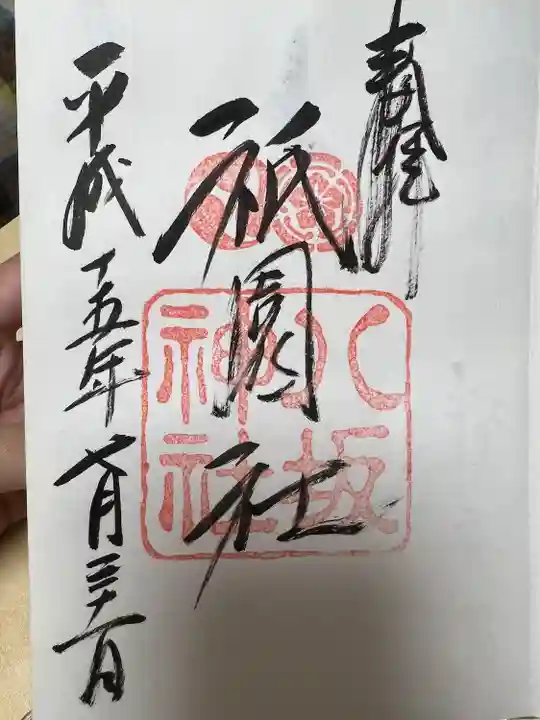 奉拝
祇園社
八坂
神社
平成十五年七月三十一日